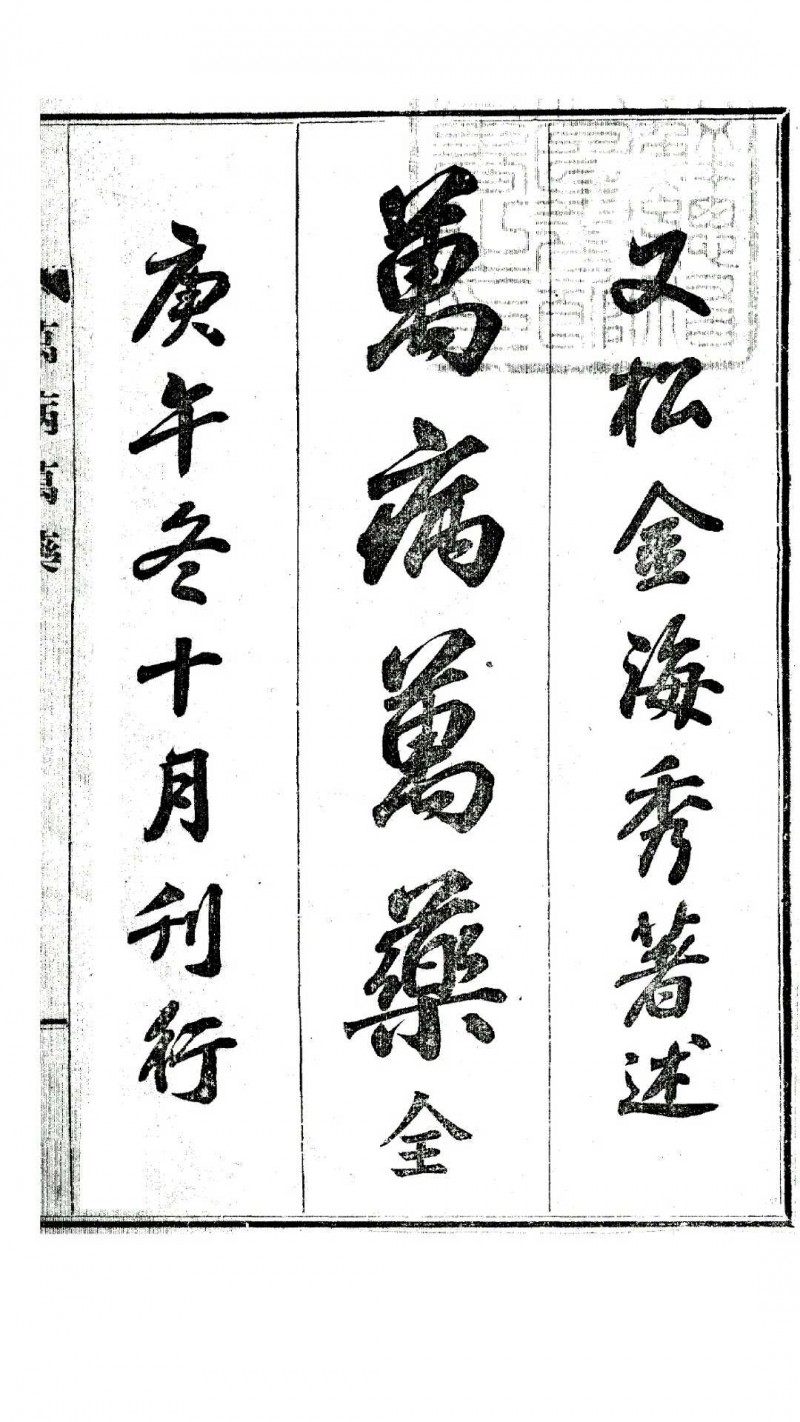 又松金海秀著述
萬病萬藥全
庚午冬十月刊行
萬病萬藥